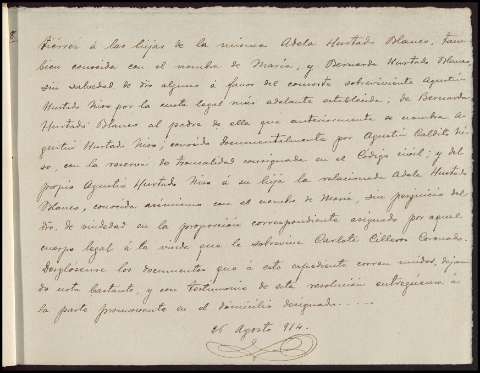 á las hijas de la misma Adela Hurtado Blanco, tam-
bien conocida con el nombre de María, y Bernarda Hurtado Blanco,
sin salvedad de dro alguno á favor del conocido sobreviviente Agustin
Hurtado Niso por la cuota legal más adelante establecida, de Bernarda
Hurtado Blanco al padre de ella que anteriormente se nombra A-
gustin Hurtado Niso, conocido documentalmente por Agustin
con la reserva de troncalidad consignada en el Código civil; y del
propio Agustin Hurtado Niso á su hija la relacionada Adela Hurtado
Blanco, conocida asimismo con el nombre de María, sin perjuicio del
dro. de viudedad en la proporción correspondiente asignado por aquel
cuerpo legal á la viuda que le sobrevive Carlota Cilleros Coronado.
Desglósense los documentos que á este expediente corren unidos, dejan-
do nota bastante, y con testimonio de esta resolución entréguense á
la parte promovente en el domicilio designado.....
26 Agosto 914.